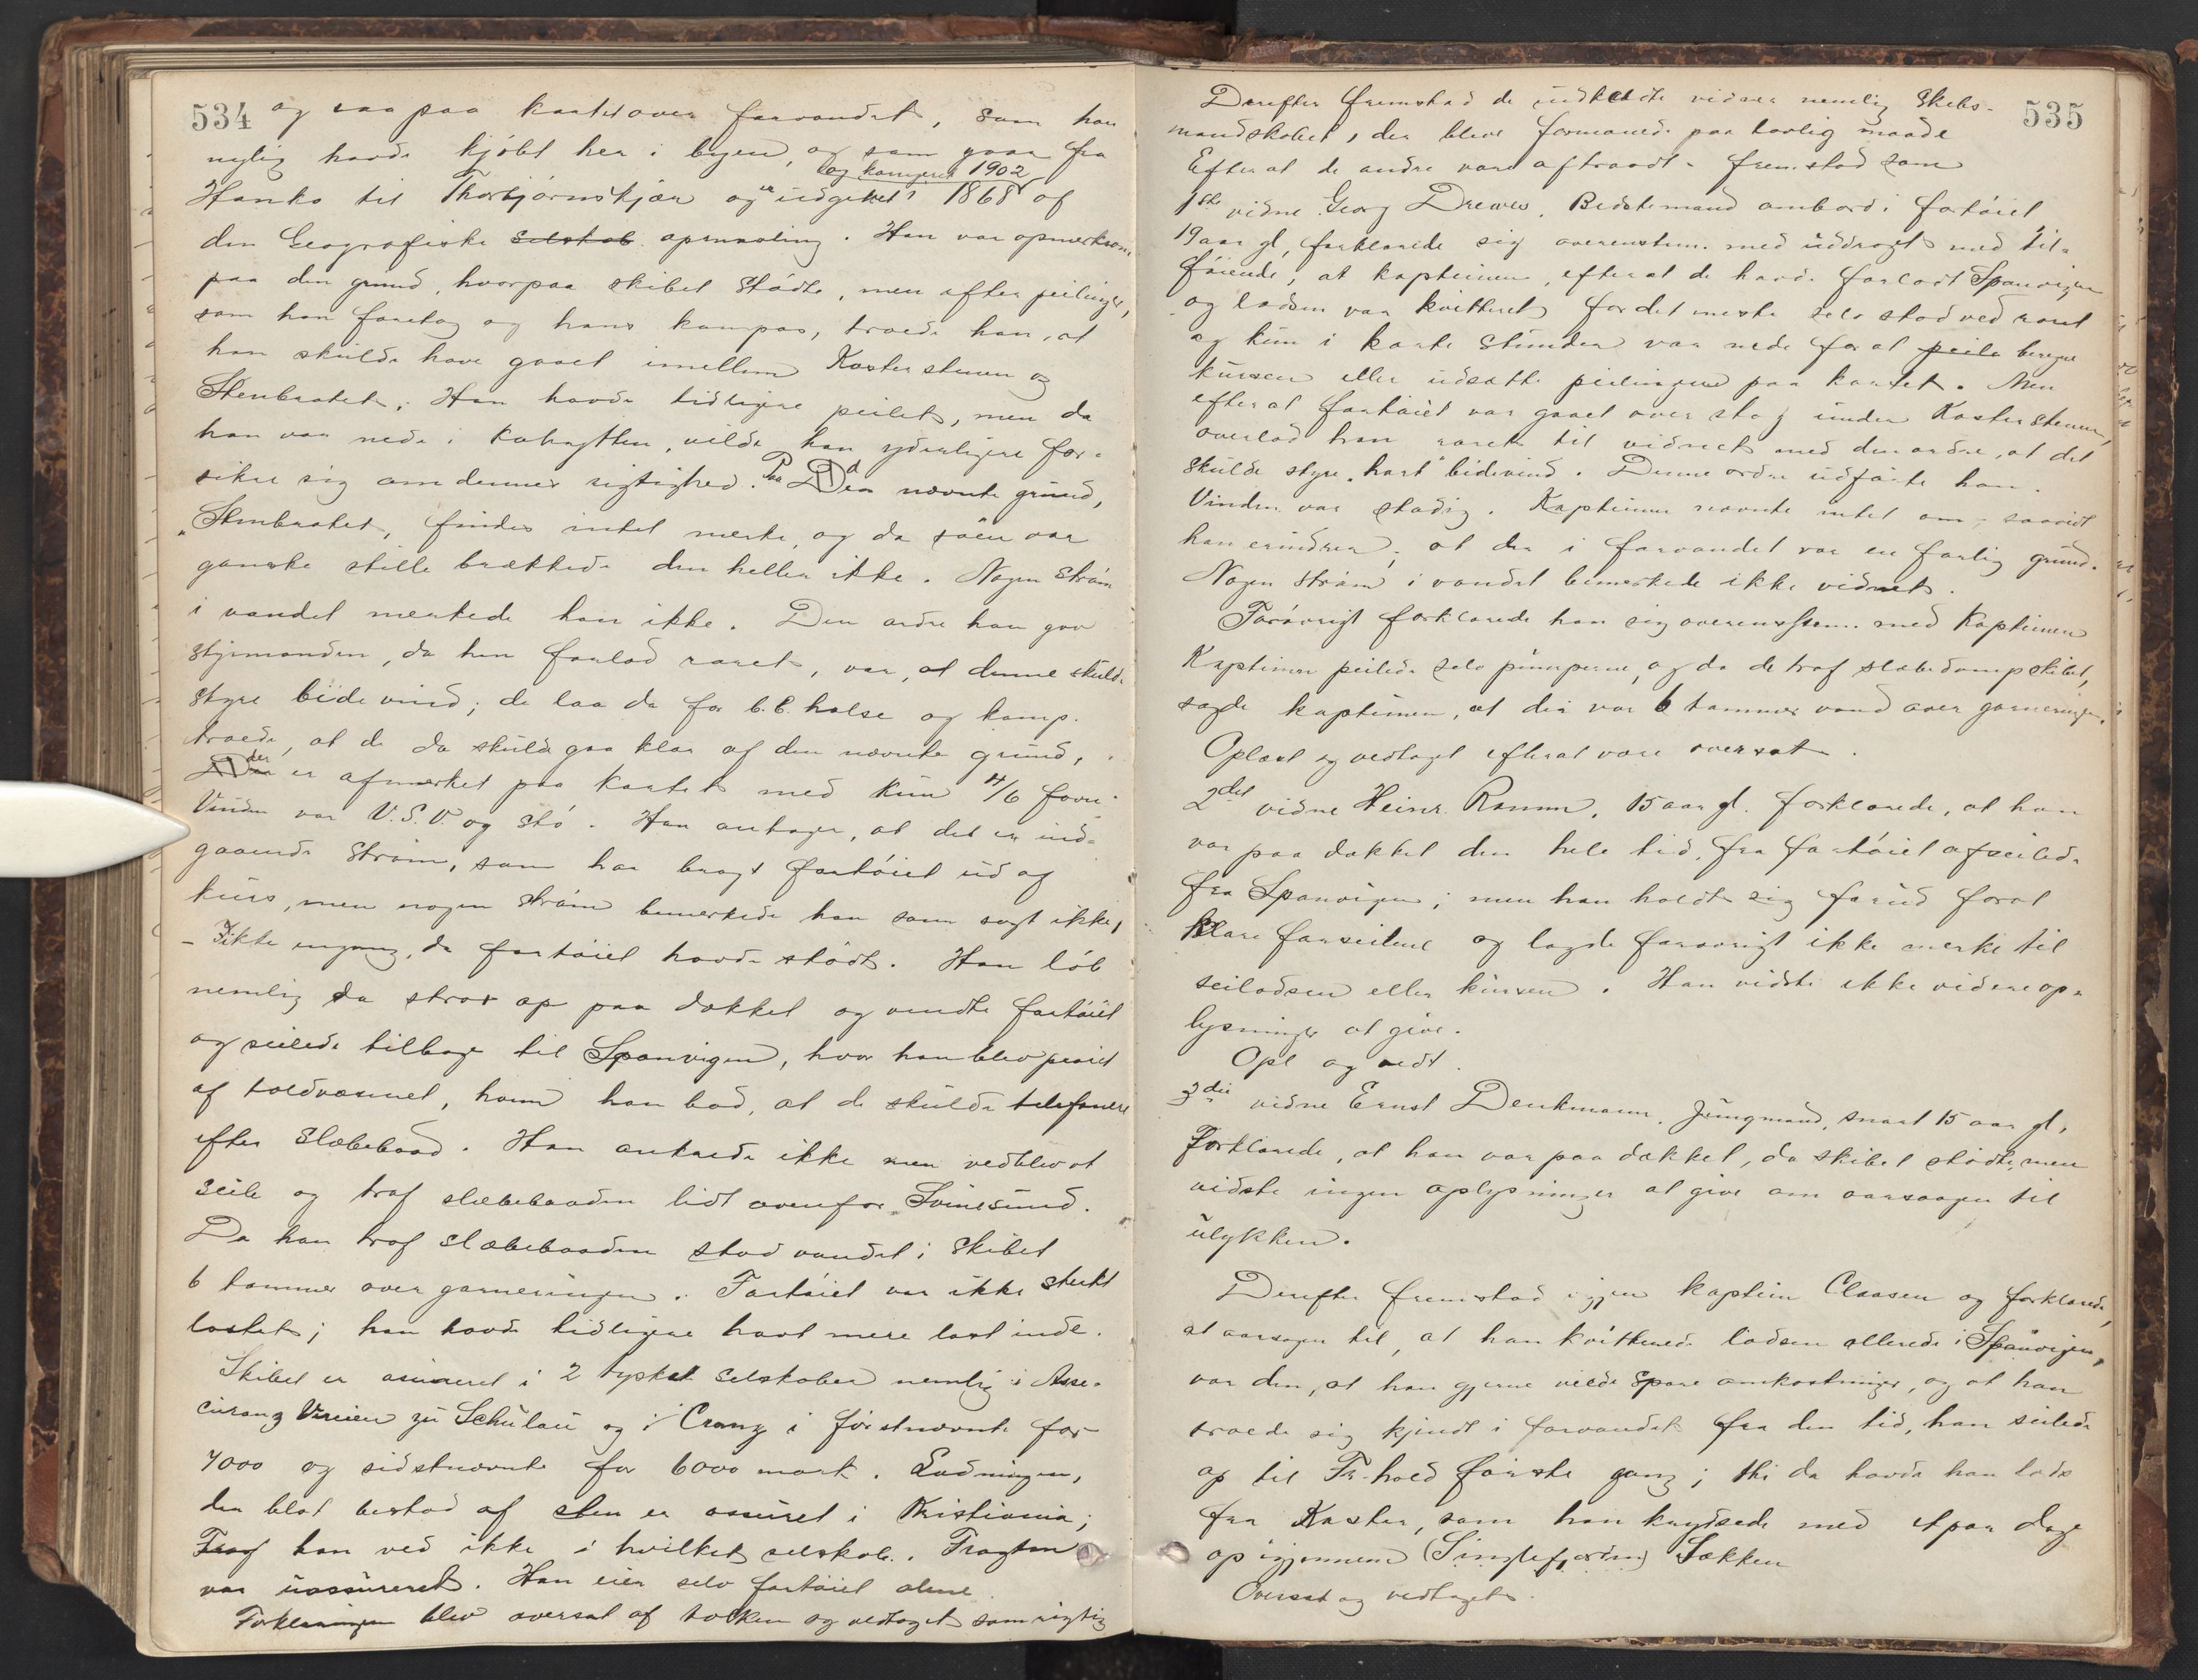 534
og saa paa kartet over farvandet, som han
nylig havde kjöbt her i byen, og som gaar fra
og korrigeret 1902
Hankø til Thorbjørnskjær og er udgivet 1868 af
den Geografiske selskab opmaaling. Han var opmerksom
paa den grund, hvorpaa skibet stödte, men efter peilinger,
som han foretog og hans kompas, troede han, at
han skulde have gaaet imellem Kostersteinen og
Stenbratet. Han havde tidligere peilet, men da
han var nede i kahytten, vilde han yderligere for-
sikre sig om dennes rigtighed. Paa Den nævnte grund,
"Stenbratet, findes intet merke, og da söen var
ganske stille brækkede den heller ikke. Nogen Ström
i vandet merkede han ikke. Den ordre han gav
styrmanden, da han forlod roret, var, at denne skulde
styre bidevind; de laa da for b.b. halse og komp.
troede, at de da skulde gaa klar af den nævnte grund,
der er afmerket paa kartet med kun 4/6 favn.
Vinden var V.S.V. og stö. Han antager, at det er ind-
gaaende Ström, som har bragt fartöiet ud af
kurs, men nogen ström bemerkede han som sagt ikke,
- ikke engang, da fartöiet havde stödt. Han löb
nemlig da strax op paa dækket og vendte fartöiet
og seilede tilbage til Spanvigen, hvor han blev preiet
af toldvæsenet, hvem han bad, at de skulde telefonere
efter Slæbebaad. Han ankrede ikke men vedblev at
seile og traf slæbebaaden lidt ovenfor Svinesund.
Da han traf slæbebaaden stod vandet i skibet
6 tommer over garneringen. Fartöiet var ikke sterkt
lastet; han havde tidligere havt mere last inde.
Skibet er assureret i 2 tyske selskaber nemlig i Asse-
curanz Verein zu Schulau og i Cranz i förstnævnte for
7000 og sidstnævnte for 6000 mark. Ladningen,
der blot bestod af sten er assuret i Kristiania;
Fragt han ved ikke i hvilket selskab. Fragten
var uassureret. Han eier selv fartöiet alene.
Forklaringen blev oversat af tolken og vedtaget som rigtig
535
Derefter fremstod de indkaldte vidner nemlig Skibs-
mandskabet, der bleve formanede paa lovlig maade
Efterat de andre vare aftraadt - fremstod som
1ste vidne Georg Drewes, Bedstemand ombord i fartöiet
19 aar gl, forklarede sig overenstem. med uddraget med til-
föiende, at kapteinen, efterat de havde forladt Spanvigen
og lodsen var kvitteret, for det meste selv stod ved roret
og kun i korte Stunder var nede for at peile beregne
kursen eller udsætte peilingerne paa kartet. Men
efterat fartöiet var gaaet over stag under Kostersteinen,
overlod han roret til vidnet med den ordre, at det
skulde styre "hart" bidevind. Denne ordre udförte han.
Vinden var stadig. Kapteinen nævnte intet om - saavidt
han erindrer, at der i farvandet var en farlig grund.
Nogen Ström i vandet bemerkede ikke vidnet.
Forövrigt forklarede han sig overensstem. med Kapteinen
Kapteinen peilede selv pumperne, og da de traf slæbedampskibet,
sagde kapteinen, at der var 6 tommer vand over garneringen.
Oplæst og vedtaget efterat være oversat.
2det vidne Heinr. Ramm, 15 aar gl. forklarede, at han
var paa dækket den hele tid, fra fartöiet afseilede
fra Spanvigen; men han holdt sig forud forat
klare forseilene og lagde forövrigt ikke merke til
seiladsen eller kursen. Han vidste ikke videre op-
lysninger at give.
Opl og vedt.
3die vidne Ernst Denkmann, Jungmand, snart 15 aar gl,
Forklarede, at han var paa dækket, da skibet stödte, men
vidste ingen oplysninger at give om aarsagen til
ulykken.
Derefter fremstod igjen kaptein Claasen og forklarede,
at aarsagen til, at han kvitterede lodsen allerede i Spanvigen,
var den, at han gjerne vilde spare omkostninger, og at han
troede sig kjendt i farvandet fra den tid, han seilede
op til Fr.hald förste gang; thi da havde han lods
fra Koster, som han krydsede med et par dage
op igjennem (Singlefjorden) Sækken
Oversat og vedtaget.